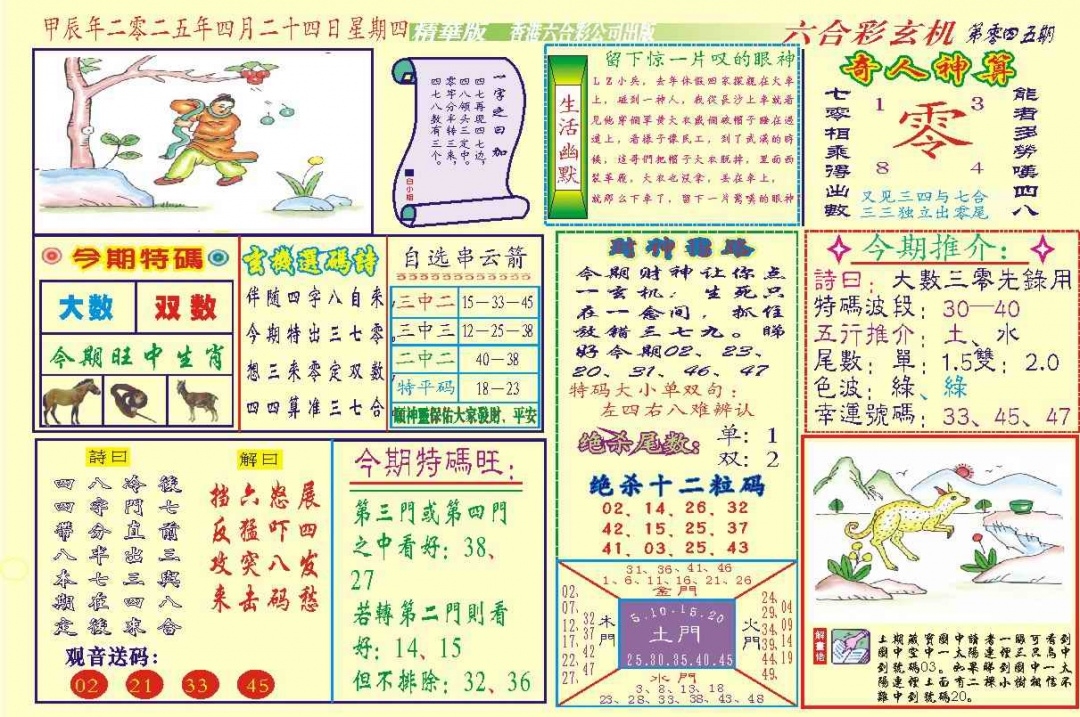 甲辰年二零二五年四月二十四日星期四
精華版
香港六合彩公司出版
六合彩玄机
第零四五期
一字之曰加
四七再现四七边，
四八领头三定中。
零字牛分半转三来，
四七八数有三个。
白小姐
生活幽默
留下惊一片叹的眼神
LZ小兵，去年休假回家探親在火車
上，碰到一种人，我從長沙上車就看
見他穿個軍黄大衣戴個破帽子睡在過
道上，看樣子像民工，到了武漢的時
候，這哥們把帽子大衣脱掉，里面西
裝革履，大衣也没拿，丢在車上，
就那么下車了，留下一片驚嘆的眼神
奇人神算
七零相乘得出數
1
3
零
8
4
能者多勞嘆四八
又见三四与七合
三三独立出零尾
今期特碼
大数
双数
今期旺中生肖
玄機選碼詩
伴随四字八自来
今期特出三七零
想三来零定双数
四四算准三七合
自选串云箭
三中二
15—33—45
三中三
12—25—38
二中二
40—38
特平码
18—23
願神靈保佑大家發財、平安
财神密路
今期财神让你点
一玄机：生死只
在一念间，抓住
放错三七九。睇
好今期02、23、
20、31、46、47
特码大小单双句：
左四右八难辨认
绝杀尾数：
单：1
双：2
绝杀十二粒码
02、14、26、32
42、15、25、37
41、03、25、43
今期推介：
詩曰：大數三零先錄用
特碼波段：30—40
五行推介：土、水
尾數：單：1.5雙：2.0
色波：綠、綠
幸運號碼：33、45、47
詩曰
四四帶八本期定
八字分半七在後
冷門直出三四來
後七前三與八合
解曰
挡反攻来
六猛突击
怒吓八码
展四发愁
观音送码：
02
21
33
45
今期特碼旺：
第三門或第四門
之中看好：38、
27
若轉第二門則看
好：14、15
但不排除：32、36
31、36、41、46
1、6、11、16、21、26
金門
02、07、12、17、22、27、
32
37
42
47
木門
5.10.15.20
土門
25.30.35.40.45
火門
24、29、34、39、44、49、
04
09
14
19
水門
3、8、13、18
23、28、33、38、43、48
解畫估
上期藏寶圖中讀者一眼可看到
圖中空中一太陽連經三只鳥中
到號碼03。如果睇到圖中一太
陽連經上面有二棵小樹相信不
難中到號碼20。